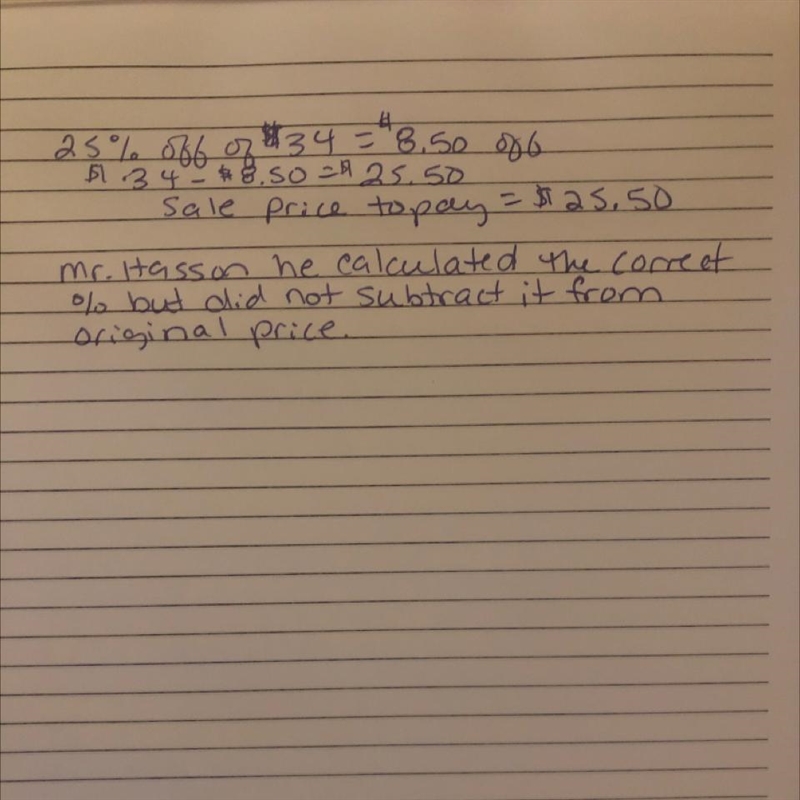 25% off of $34 = $8.50 off
$34 - $8.50 = $25.50
Sale price to pay = $25.50
Mr. Hasson he calculated the correct
% but did not subtract it from
original price.